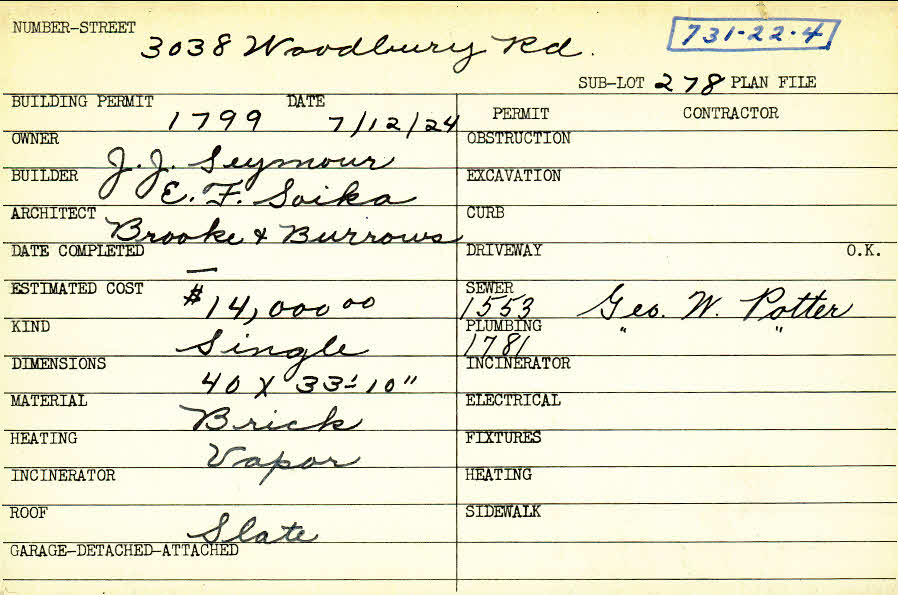 NUMBER-STREET
3038 Woodbury Rd.
731-22-4
SUB-LOT 278 PLAN FILE
BUILDING PERMIT DATE
1799 7/12/24
PERMIT CONTRACTOR
OWNER
J. J. Seymour
OBSTRUCTION
BUILDER
E. F. Soika
EXCAVATION
ARCHITECT
Brooke & Burrows
CURB
DATE COMPLETED
—
DRIVEWAY O.K.
ESTIMATED COST
$14,000 00
SEWER
1553 Geo. W. Potter
KIND
Single
PLUMBING
1781 " "
DIMENSIONS
40 X 33'-10"
INCINERATOR
MATERIAL
Brick
ELECTRICAL
HEATING
Vapor
FIXTURES
INCINERATOR
HEATING
ROOF
Slate
SIDEWALK
GARAGE-DETACHED-ATTACHED